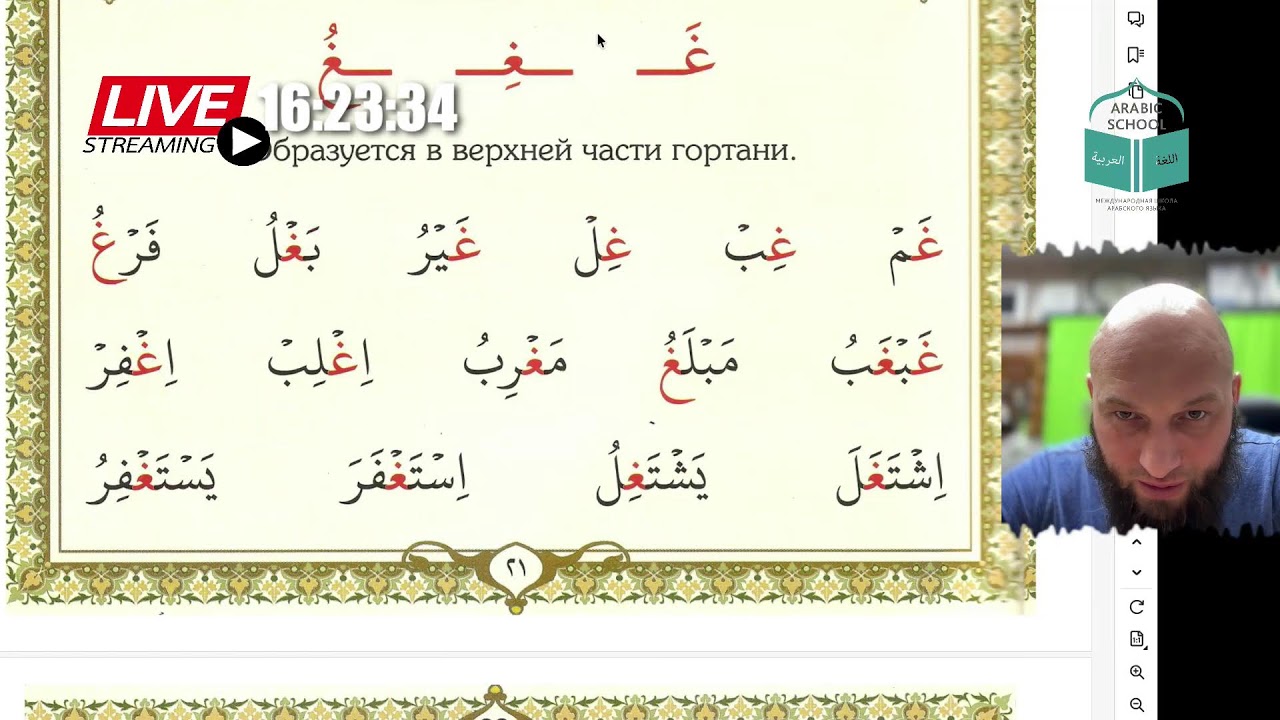 غَـ ـغِـ ـغُ
LIVE 16:23:34
STREAMING
бразуется в верхней части гортани.
غَمْ غِبْ غِلْ غَيْرُ بَغْلُ فَرْغُ
غَبْغَبُ مَبْلَغُ مَغْرِبُ اِغْلِبْ اِغْفِرْ
اِشْتَغَلَ يَشْتَغِلُ اِسْتَغْفَرَ يَسْتَغْفِرُ
٢١
ARABIC
SCHOOL
اللغة العربية
МЕЖДУНАРОДНАЯ ШКОЛА
АРАБСКОГО ЯЗЫКА
1:1